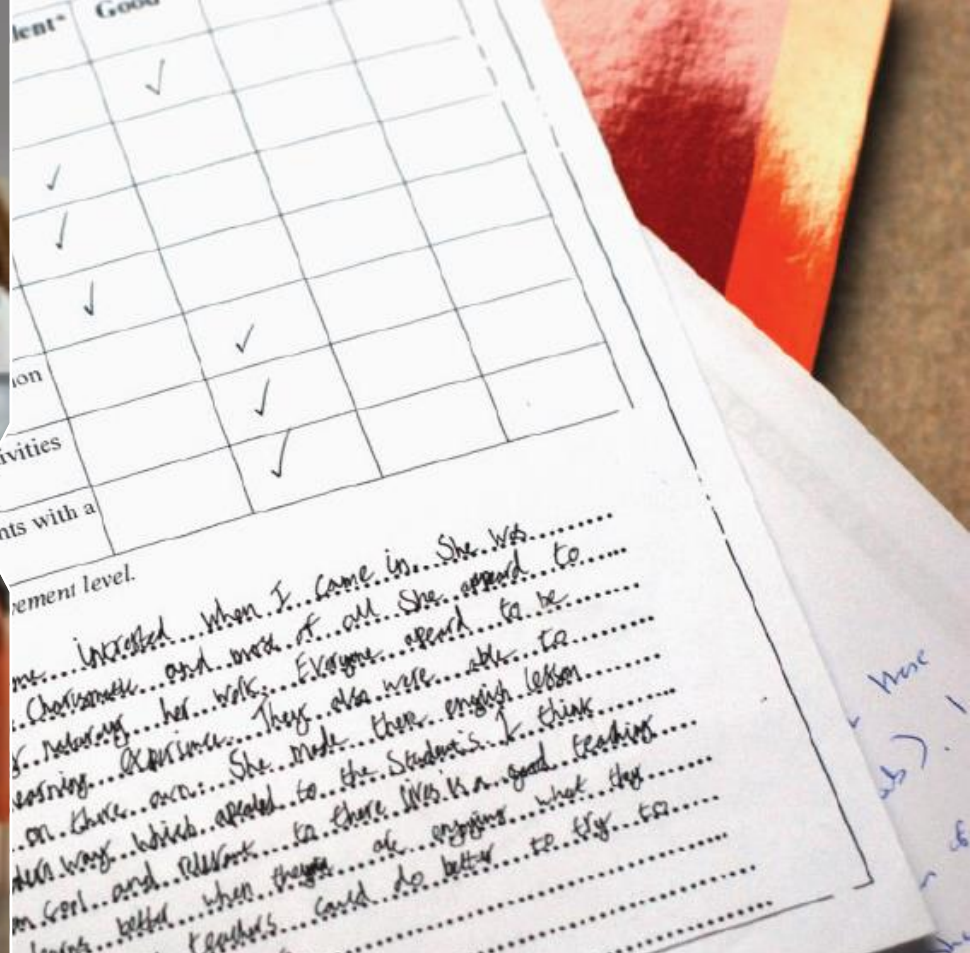 lent* Good
ion
ivities
nts with a
vement level.
me... Intrested when I came in. She was
Charismatic and most of all She apeard to
her work. Everyone apeard to be
earning experience. They also were able to
on there own. She made there english lesson
way which apealed to the Student's I think
and relevant to there lives is a good teaching
better when they are enjoying what they
teachers could do better to try to
these
).